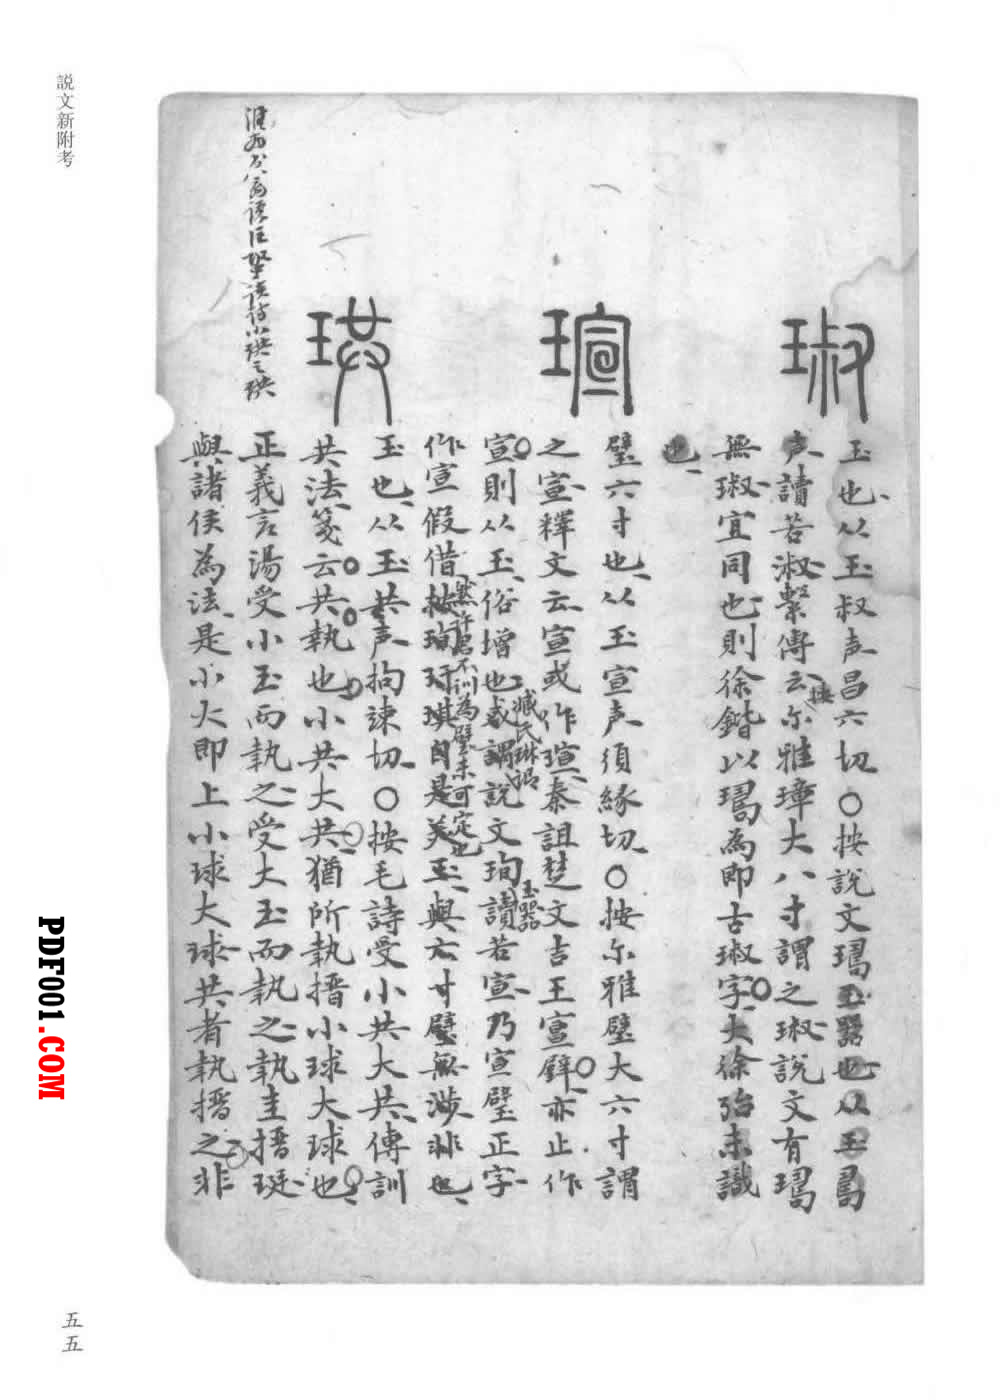 説文新附考
琡
玉也从玉叔声昌六切〇按說文㻿玉器也从玉𠷎
声讀若淑繫傳云尔雅璋大八寸謂之琡說文有㻿
按
無琡宜同也則徐鍇以㻿為即古琡字大徐殆未識
也
瑄
璧六寸也从玉宣声須緣切〇按尔雅璧大六寸謂
之宣釋文云宣或作瑄秦詛楚文吉玉宣璧亦止作
宣則从玉俗增也或謂說文珣讀若宣乃宣璧正字
臧氏琳說
玉器
作宣假借按珣玗琪自是美玉與六寸璧無涉非也
然許君不訓為璧未可定也
珙
玉也从玉共声拘竦切〇按毛詩受小共大共傳訓
共法箋云共執也小共大共猶所執搢小球大球也
正義言湯受小玉而執之受大玉而執之執圭搢珽
與諸侯為法是小大即上小球大球共者執搢之非
五五
PDF001.COM